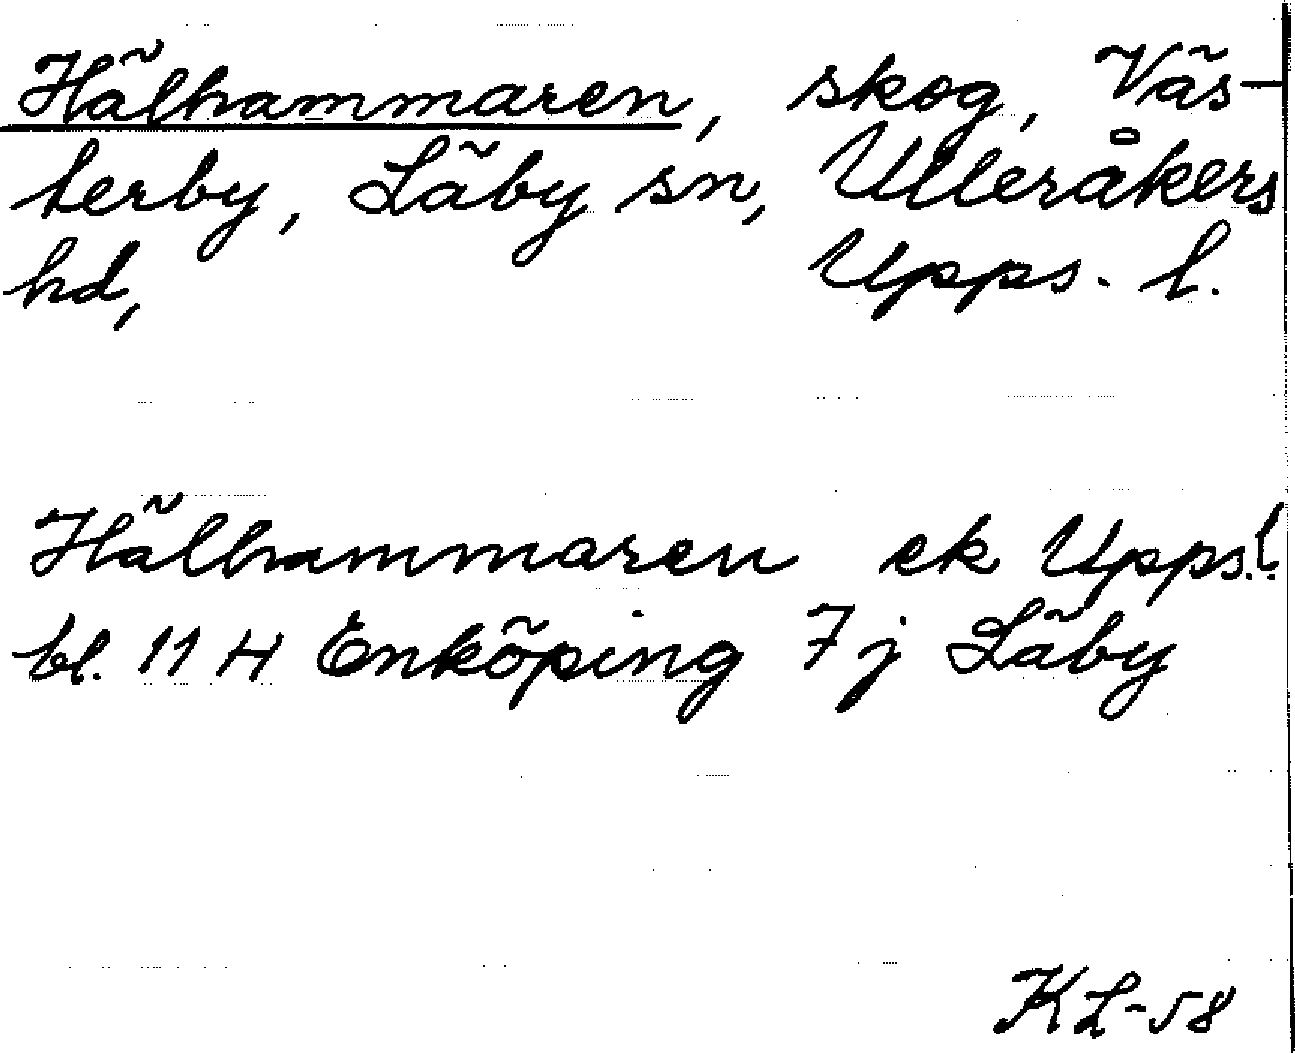 Hälhammaren, skog, Väs-
terby, Läby sn, Ulleråkers
hd, Upps. l.
Hälhammaren ek Upps. l.
bl. 11 H Enköping 7 j Läby
KL-58